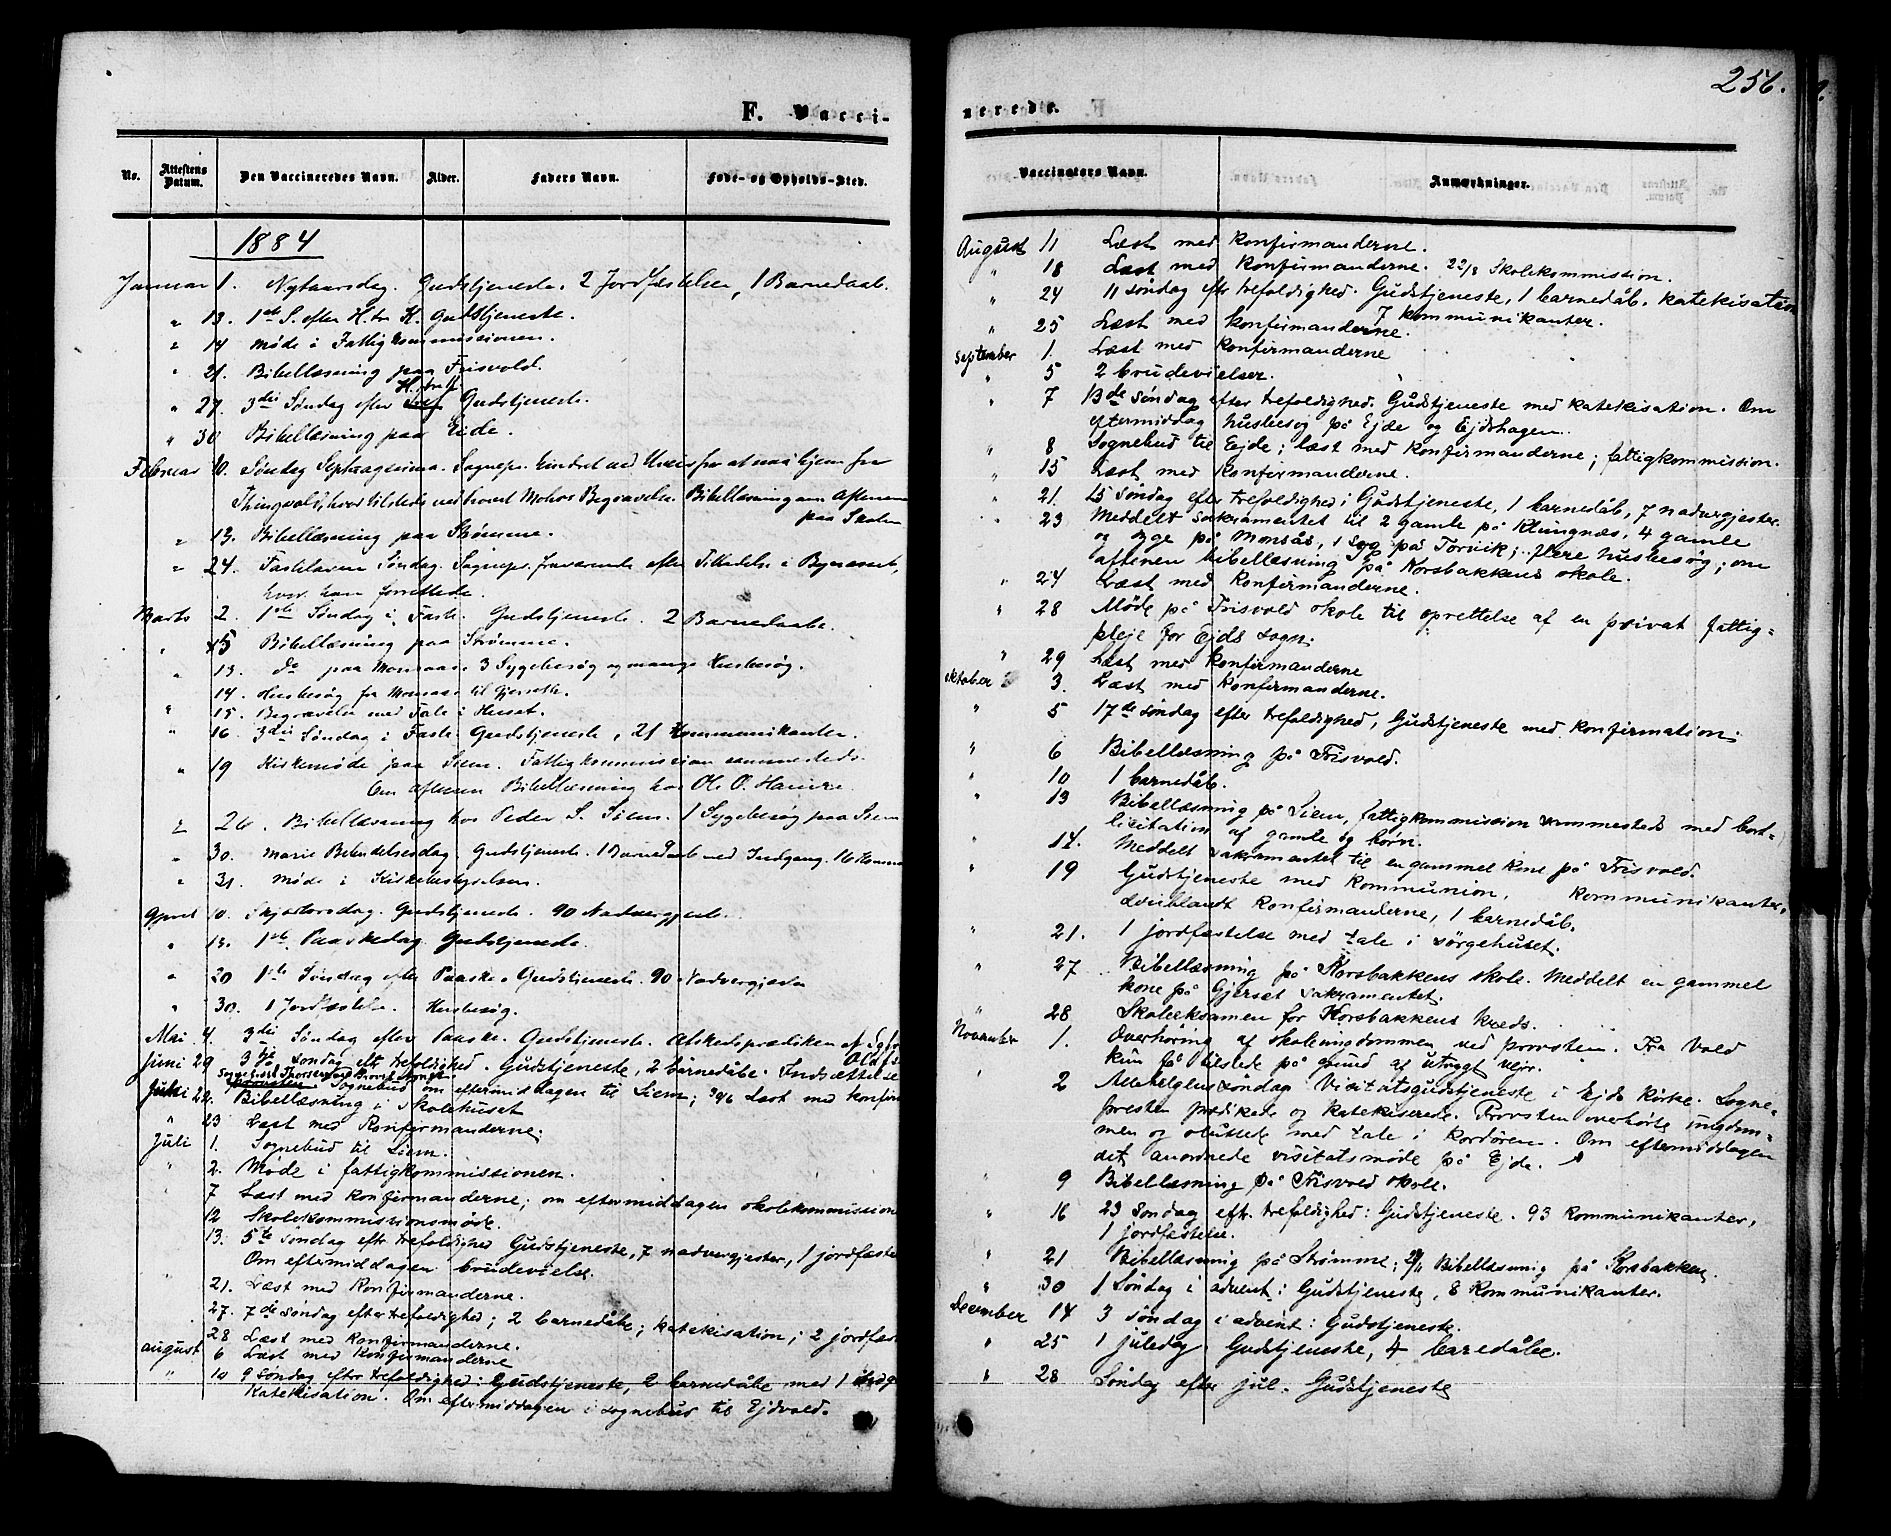 F. Vacci-
No. Attestens Datum. Den Vaccineredes Navn. Alder. Faders Navn. Føde- og Opholds-Sted.
1884
Januar 1. Nytaarsdag. Gudstjeneste. 2 Jordfæstelser, 1 Barnedaab.
" 13. 1ste S. efter H. tr. K. Gudstjeneste.
" 14 Møde i Fattigkommissionen.
" 21. Bibellæsning paa Frisvold.
" 27. 3die Søndag efter H. tre K Gudstjeneste.
" 30 Bibellæsning paa Eide.
Februar 10. Søndag Septuagesima. Sognepr. hindret ved Uveir fra at naa hjem fra
Thingvold, hvor tilstede ved Begravelse. Bibellæsning om Aftenen
paa Skolen
" 13. Bibellæsning paa Strømme.
" 24. Fastelavns Søndag. Sognepr. fraværende efter Tilladelse i Bynæsset,
hvor han forrettede.
Marts 2. 1ste Søndag i Faste. Gudstjeneste. 2 Barnedaabe.
" 5 Bibellæsning paa Strømme.
" 13. do paa Monsaas 3 Sygebesøg og mange Husbesøg.
14. Husbesøg fra Monsaas til Gjerseth.
" 15. Begravelse med Tale i Huset.
" 16. 3die Søndag i Faste. Gudstjeneste, 21 Kommunikanter.
" 19 Kirkemøde paa Siem. Fattigkommission sammesteds.
Om Aftenen Bibellæsning hos Ole O.
" 26. Bibellæsning hos Peder S. Siem. 1 Sygebesøg paa Siem
" 30. Mariæ Bebudelsesdag. Gudstjeneste. 1 Barnedaab ved Indgang. 16 Kommu
" 31. Møde i Kirkebestyrelsen.
April 10. Skjærtorsdag. Gudstjeneste. 90 Nadvergjester.
" 13. 1ste Paaskedag Gudstjeneste.
" 20 1ste Søndag efter Paaske. Gudstjeneste. 90 Nadvergjester
" 30. 1 Jordfæstelse. Husbesøg.
Mai 4. 3die Søndag efter Paaske. Gudstjeneste. Afskedsprædiken af Sgpr.
Juni 29 3die søndag eftr trefoldighed. Gudstjeneste, 2 barnedåbe. Indsættelse
provsten Sognebud om eftermiddagen til Siem; 30/6 Læst med konfir
Juni 22. Bibellæsning i skolehuset
" 23 Læst med Konfirmanderne.
Juli 1. Sognebud til Siem.
" 2. Møde i fattigkommissionen.
7 Læst med konfirmanderne; om eftermiddagen skolekommission
12 Skolekommissionsmøde.
13. 5te søndag eftr trefoldighed Gudstjeneste, 7 nadvergjester, 1 jordfæste
" Om eftermiddagen brudevielse.
21. Læst med Konfirmanderne.
27. 7de søndag efter trefoldighed; 2 barnedåbe; katekisation; 2 jordfæst
28 Læst med konfirmanderne.
august 6 Læst med Konfirmanderne
" 10 9 søndag eftr trefoldighed: Gudstjeneste, 2 barnedåbe med 1 indg
Katekisation. Om eftermiddagen i sognebud til Ejdvold.
256.
nerede.
Vaccinators Navn. Anmærkninger.
August 11 Læst med konfirmanderne.
" 18 Læst med Konfirmanderne. 22/8 Skolekommission.
" 24 11 søndag eftr trefoldighed. Gudstjeneste, 1 barnedåb, katekisation
7 kommunikanter.
" 25 Læst med konfirmanderne.
September 1. Læst med konfirmanderne
" 5 2 brudevielser.
" 7 13de søndag efter trefoldighed. Gudstjeneste med katekisation. Om
eftermiddag husbesøg på Ejde og Ejdshagen.
" 8 Sognebud til Ejde; læst med konfirmanderne; fattigkommission.
" 15 Læst med konfirmanderne.
" 21. 15 søndag efter trefoldighed; Gudstjeneste, 1 barnedåb, 7 nadvergjester.
" 23 Meddelt sakramentet til 2 gamle på Klungnæs, 4 gamle
og syge på Monsås, 1 syg på Torvik; flere husbesøg; om
aftenen bibellæsning på Korsbakkens skole.
" 24 Læst med konfirmanderne.
" 28 Møde på Frisvold skole til oprettelse af en privat fattig=
pleje for Ejds sogn.
" 29 Læst med konfirmanderne
oktober 3. Læst med konfirmanderne.
" 5 17de søndag efter trefoldighed, Gudstjeneste med konfirmation.
" 6 Bibellæsning på Frisvold.
" 10 1 barnedåb.
" 13 Bibellæsning på Siem, fattigkommission sammesteds med bort=
licitation af gamle og børn.
" 14. Meddelt sakramentet til en gammel kone på Frisvold.
" 19 Gudstjeneste med kommunion, kommunikanter,
deriblandt konfirmanderne, 1 barnedåb.
" 21. 1 jordfæstelse med tale i sørgehuset.
" 27 Bibellæsning på Korsbakkens skole. Meddelt en gammel
kone på Gjerset sakramentet.
" 28 Skoleeksamen for Korsbakkens kreds.
November 1. Overhøring af skoleungdommen ved provsten. Fra Vold
kun få tilstede på grund af utrygt vejr.
" 2 Allehelgenssøndag. Visitatsgudstjeneste i Ejds kirke. Sogne=
presten prædikede og katekiserede. Provsten overhørte ungdom=
men og sluttede med tale i kordøren. Om eftermiddagen
det anordnede visitatsmøde på Ejde.
" 9 Bibellæsning på Frisvold skole.
" 16 23 søndag eftr. trefoldighed: Gudstjeneste. 93 kommunikanter,
1 jordfæstelse.
" 21 Bibellæsning på Strømme; 29/11 Bibellæsning på Korsbakken.
" 30 1 Søndag i advent: Gudstjeneste, 8 Kommunikanter.
December 14 3 søndag i advent: Gudstjeneste.
" 25 1 juledag. Gudstjeneste, 4 barnedåbe.
" 28 Søndag efter jul. Gudstjeneste